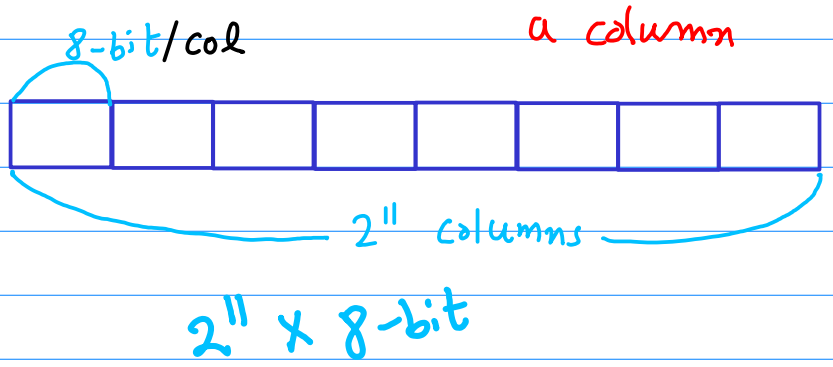 8-bit/col a column
2¹¹ columns
2¹¹ x 8-bit